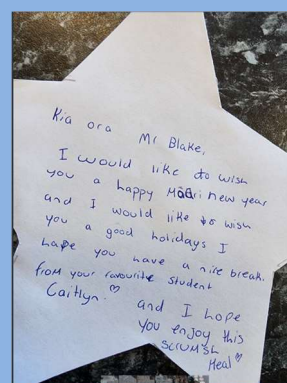 Kia ora
Mr Blake,
I would like to wish
you a happy Maori new year
and I would like to wish
you a good holidays I
hape you have a nice break.
from your favourite student
Caitlyn ♡
and I hope
you enjoy this
scrumsh
Meal ♡